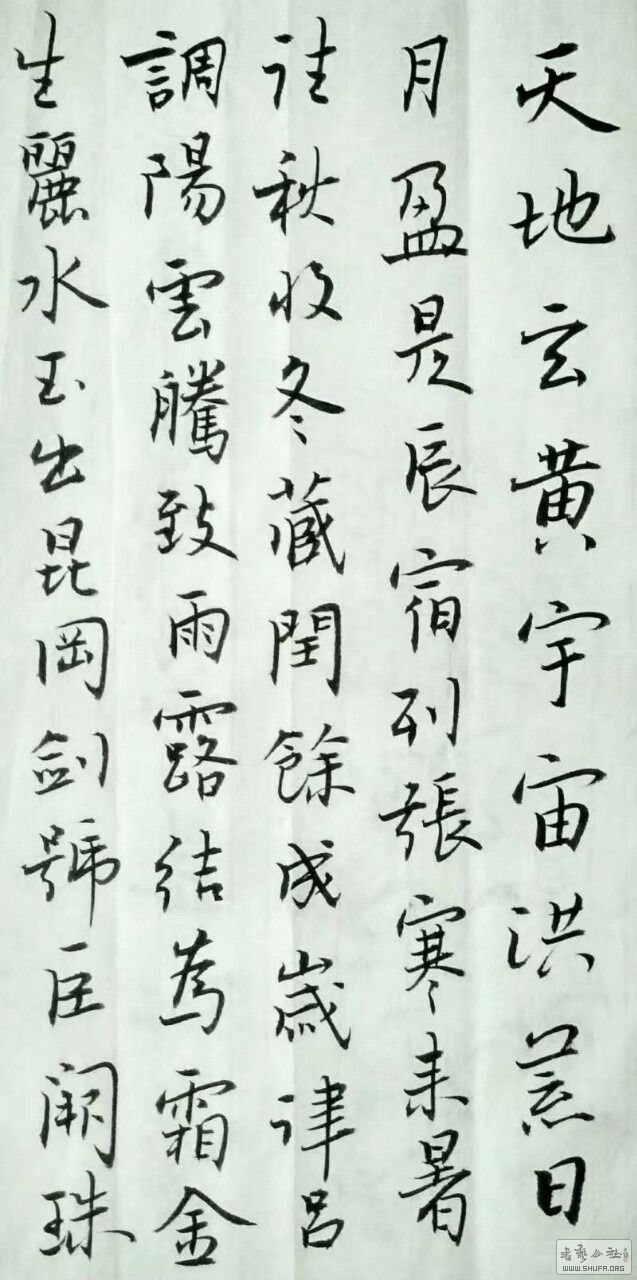 天地玄黄宇宙洪荒日
月盈昃辰宿列張寒来暑
往秋收冬藏閏餘成歲律呂
調陽雲騰致雨露結為霜金
生麗水玉出崑岡劍號巨闕珠
书艺公社
WWW.SHUFA.ORG